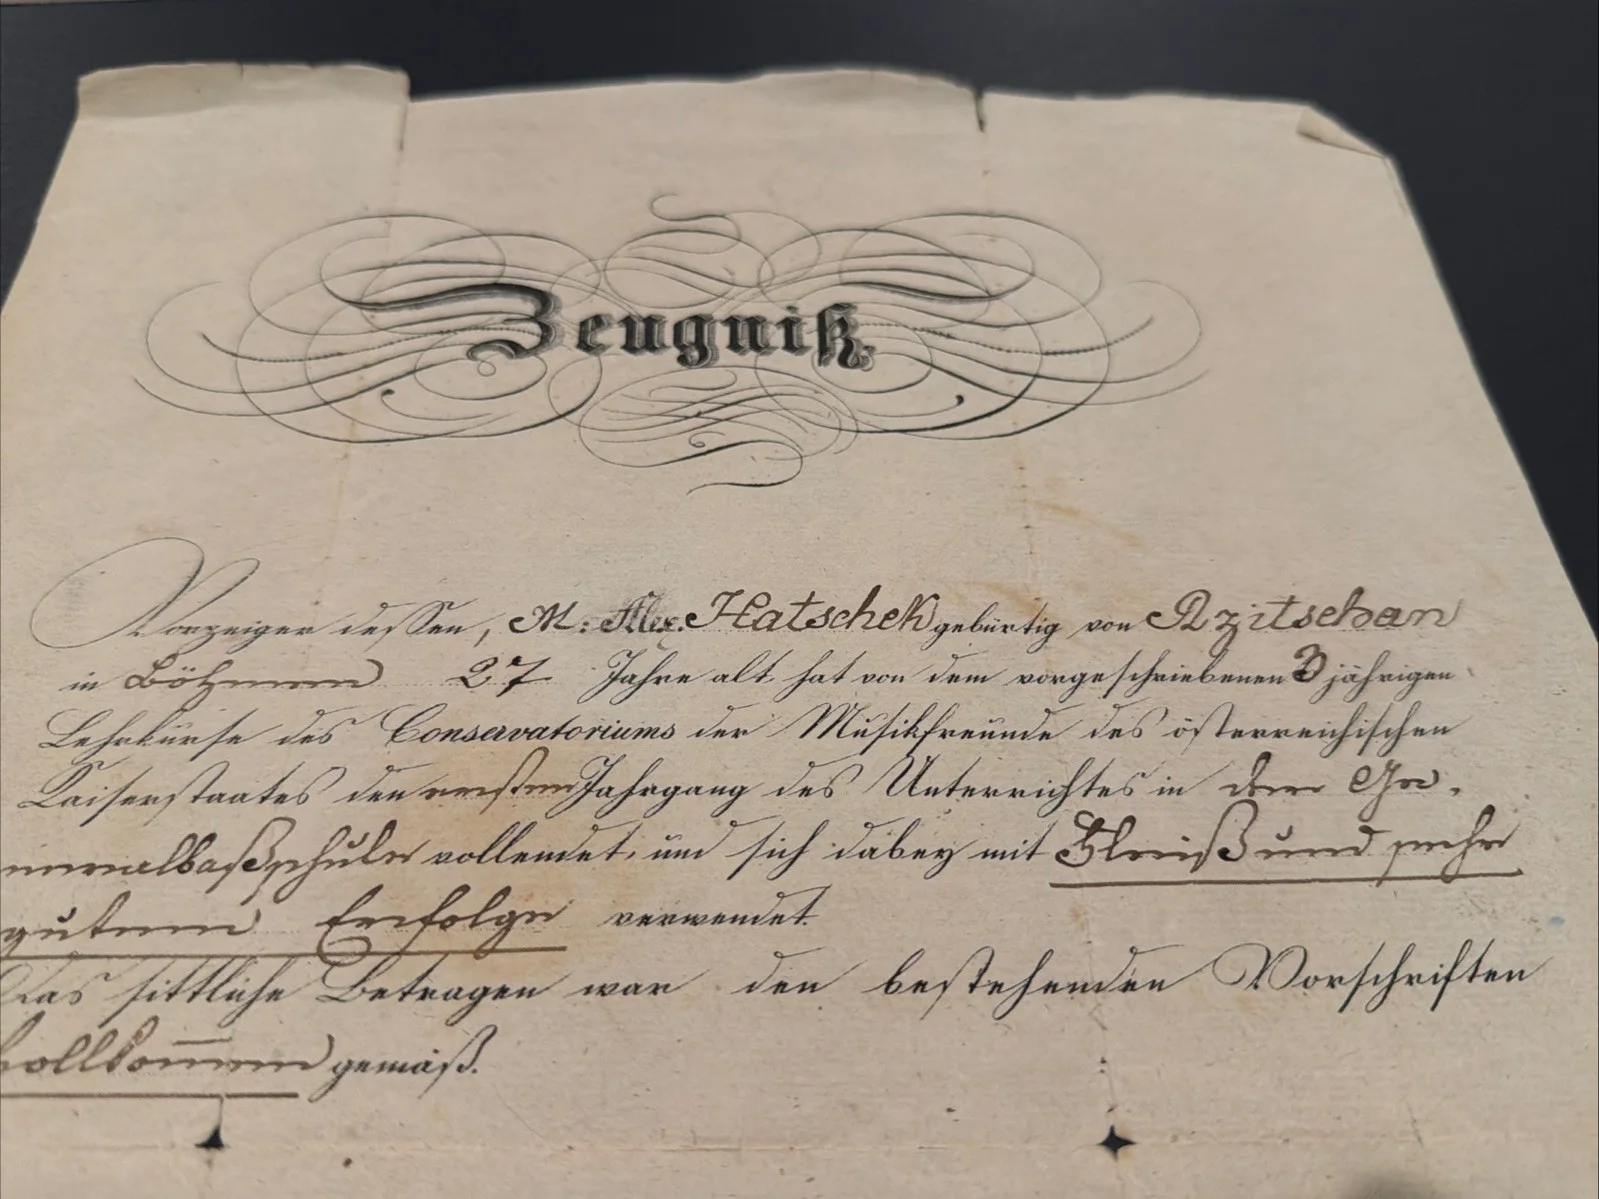 Zeugniß.
Vorzeiger dessen, M: Alex. Hatschek gebürtig von Rzitschan
in Böhmen 27 Jahre alt hat von dem vorgeschriebenen 3 jährigen
Lehrkurse des Conservatoriums der Musikfreunde des österreichischen
Kaiserstaates den ersten Jahrgang des Unterrichtes in der Ge-
neralbaßschule vollendet, und sich dabey mit Fleiß und sehr
gutem Erfolge verwendet.
Das sittliche Betragen war den bestehenden Vorschriften
vollkom̅en gemäß.